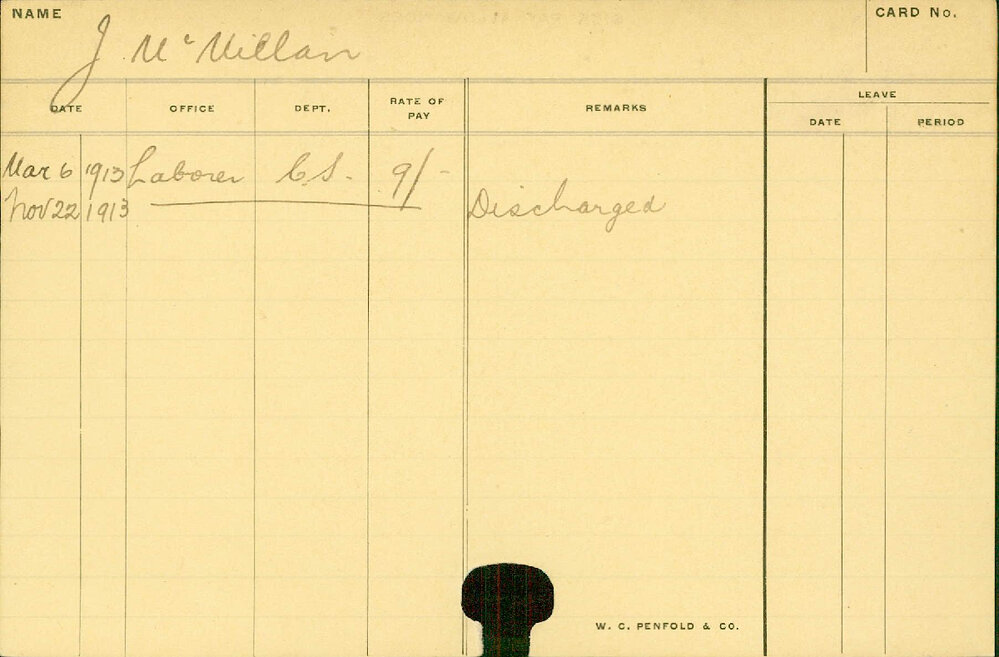 NAME
CARD No.
J McMillan
DATE
OFFICE
DEPT.
RATE OF PAY
REMARKS
LEAVE
DATE
PERIOD
Mar 6 1913 Laborer C S. 9/-
Nov 22 1913 Discharged
W. C. PENFOLD & CO.